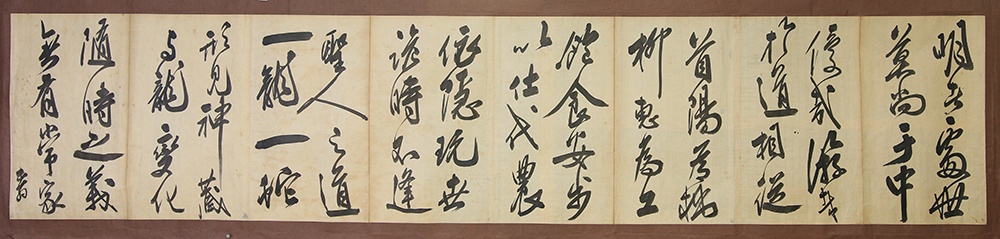 明者處世
莫尚于中
優哉游哉
於道相從
首陽為拙
柳惠為工
飽食安步
以仕代農
依隱玩世
詭時不逢
聖人之道
一龍一蛇
形見神藏
与龍變化
隨時之義
無有常家